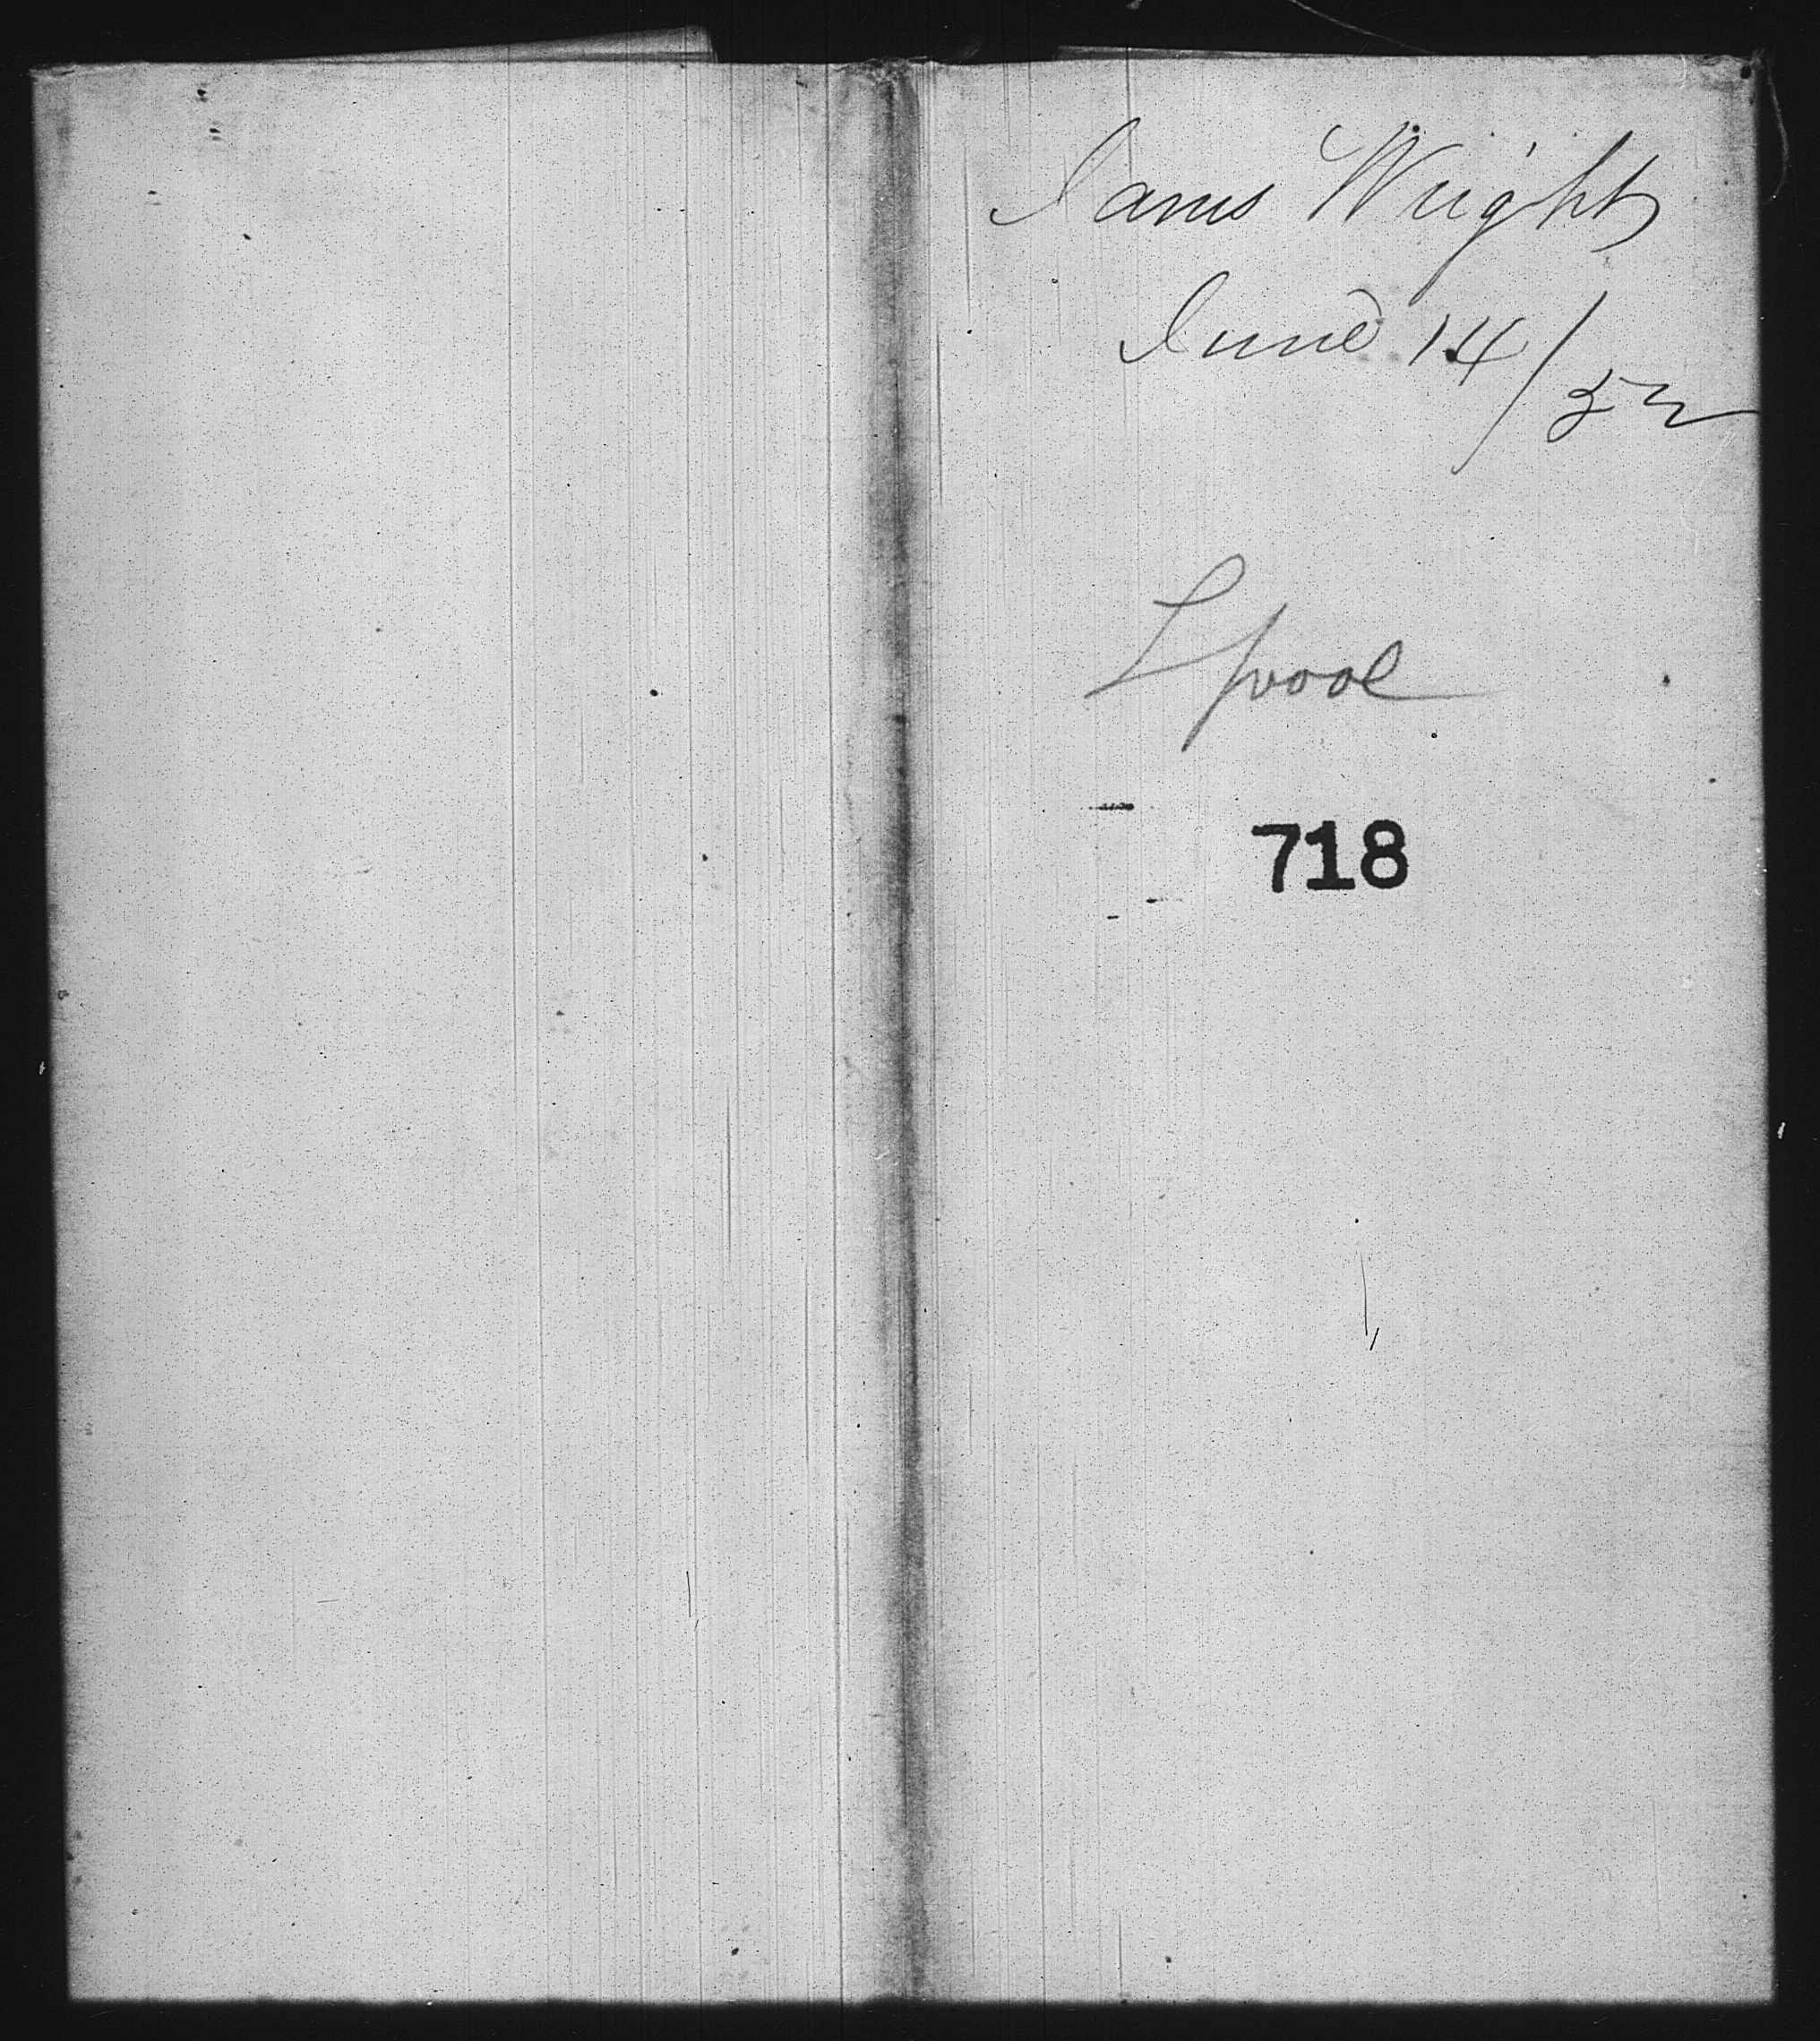 James Wright
June 14/52
Lpool
718